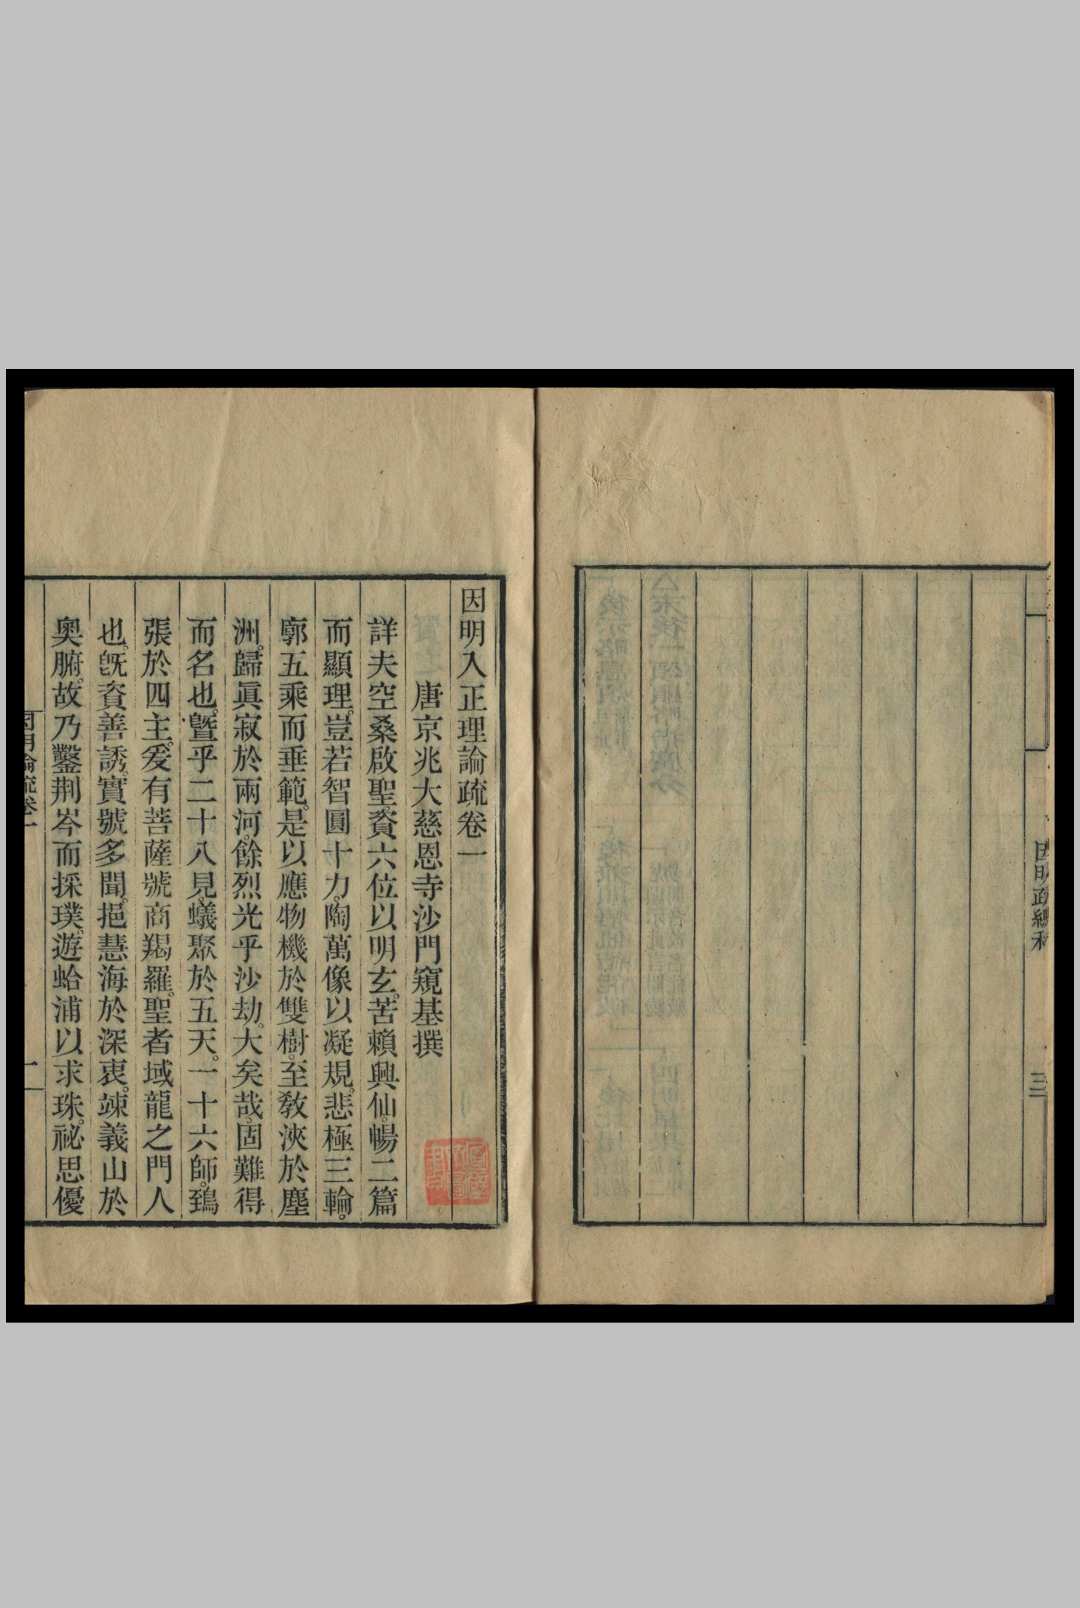 因明疏總科
三
因明入正理論疏卷一
唐京兆大慈恩寺沙門窺基撰
詳夫空桑啟聖。資六位以明玄。苦賴興仙。暢二篇
而顯理。豈若智圓十力。陶萬像以凝規。悲極三輪。
廓五乘而垂範。是以應物機於雙樹。至教浹於塵
洲。歸眞寂於兩河。餘烈光乎沙劫。大矣哉。固難得
而名也。曁乎二十八見。蟻聚於五天。一十六師。鵄
張於四主。爰有菩薩號商羯羅。聖者域龍之門人
也。旣資善誘。實號多聞。挹慧海於深衷。竦義山於
奧腑。故乃鑿荆岑而採璞。遊蛤浦以求珠。祕思優
因明論疏卷一
一